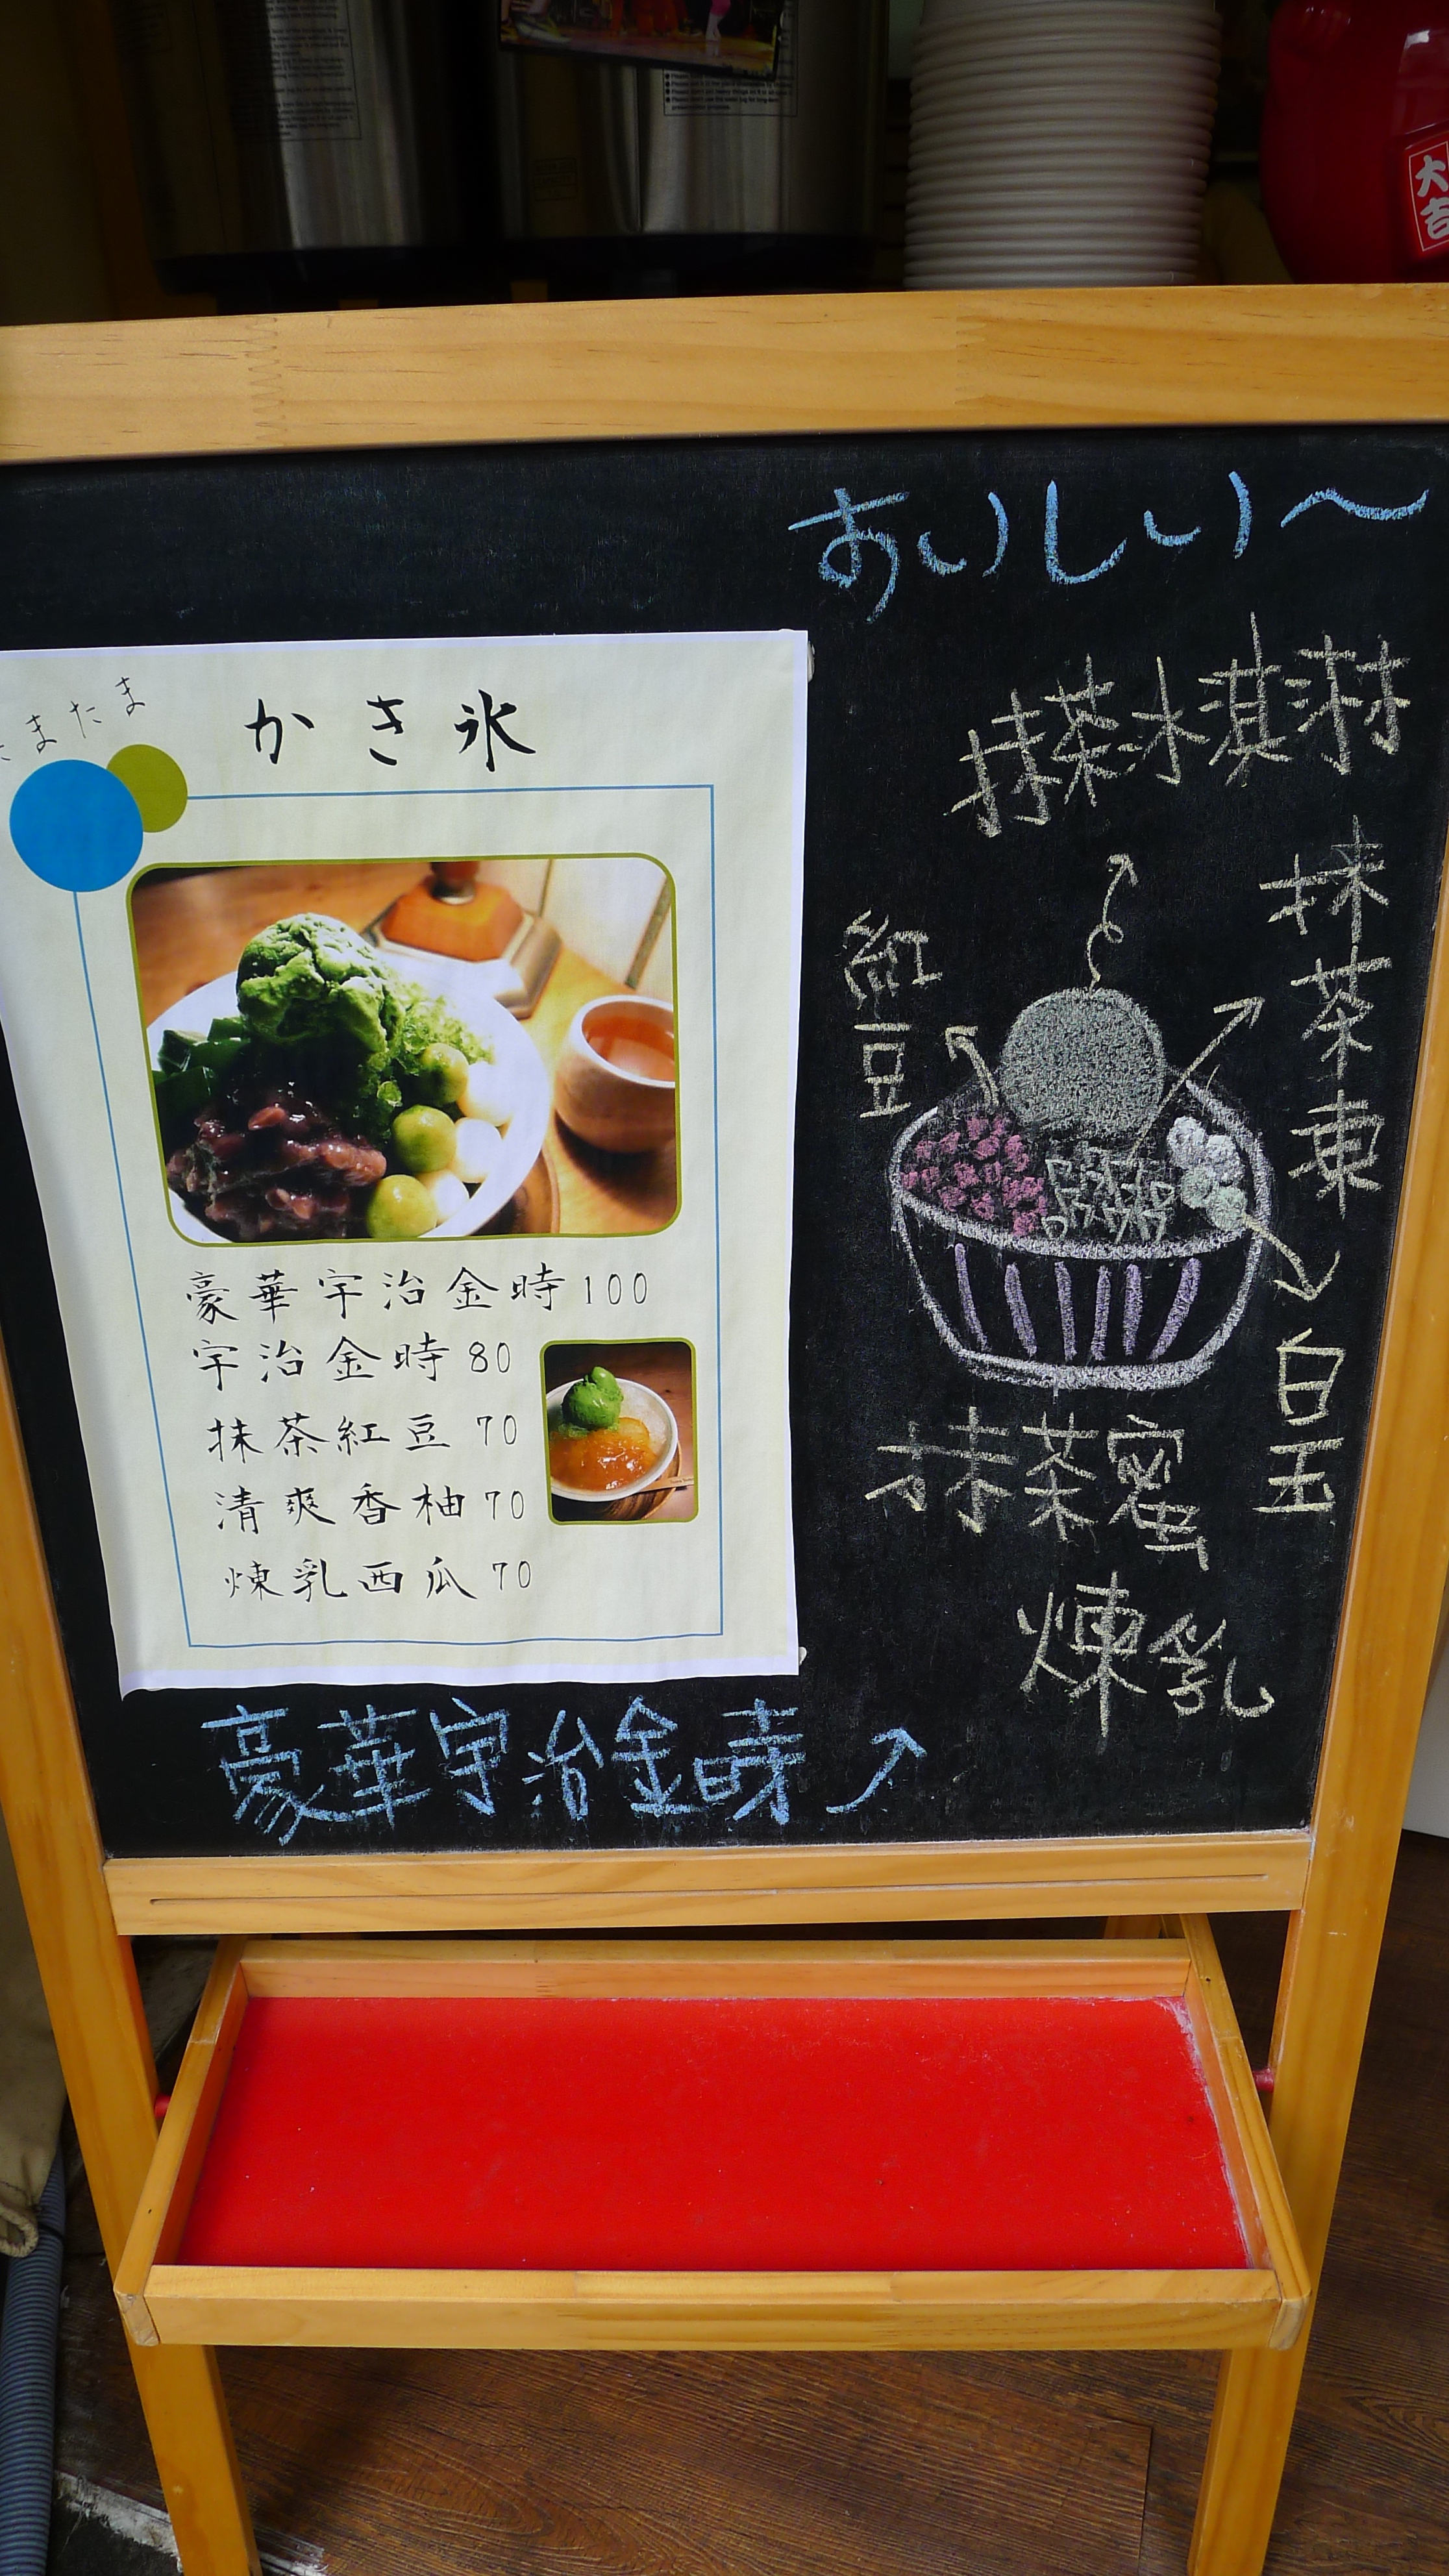 大吉
おいしい～
たまたま
かき氷
豪華宇治金時100
宇治金時80
抹茶紅豆 70
清爽香柚70
煉乳西瓜70
抹茶冰淇淋
抹茶凍
紅豆
白玉
抹茶蜜
煉乳
豪華宇治金時